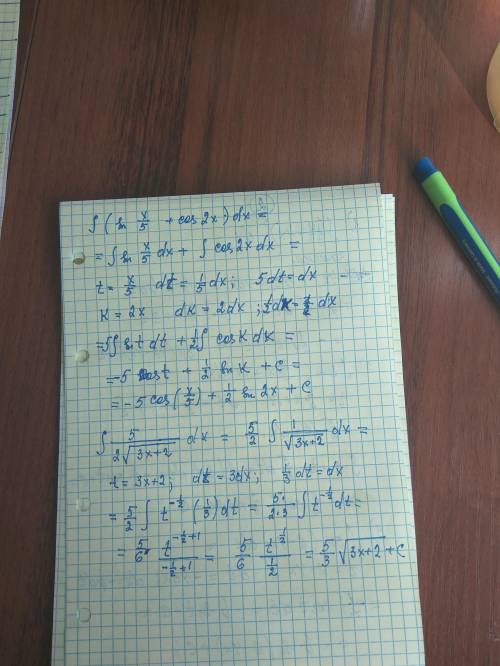 ∫(sin x/5 + cos 2x) dx =
= ∫ sin x/5 dx + ∫ cos 2x dx =
t = x/5   dt = 1/5 dx;   5dt = dx
k = 2x   dk = 2dx; 1/2 dk = dx
= 5∫ sin t dt + 1/2 ∫ cos k dk =
= -5 cos t + 1/2 sin k + C =
= -5 cos(x/5) + 1/2 sin 2x + C
∫ 5/(2√(3x+2)) dx = 5/2 ∫ 1/√(3x+2) dx =
t = 3x+2;   dt = 3dx;   1/3 dt = dx
= 5/2 ∫ t^(-1/2) (1/3) dt = 5·1/(2·3) ∫ t^(-1/2) dt =
= 5/6 · t^(-1/2+1)/(-1/2+1) = 5/6 t^(1/2)/(1/2) = 5/3 √(3x+2) + C